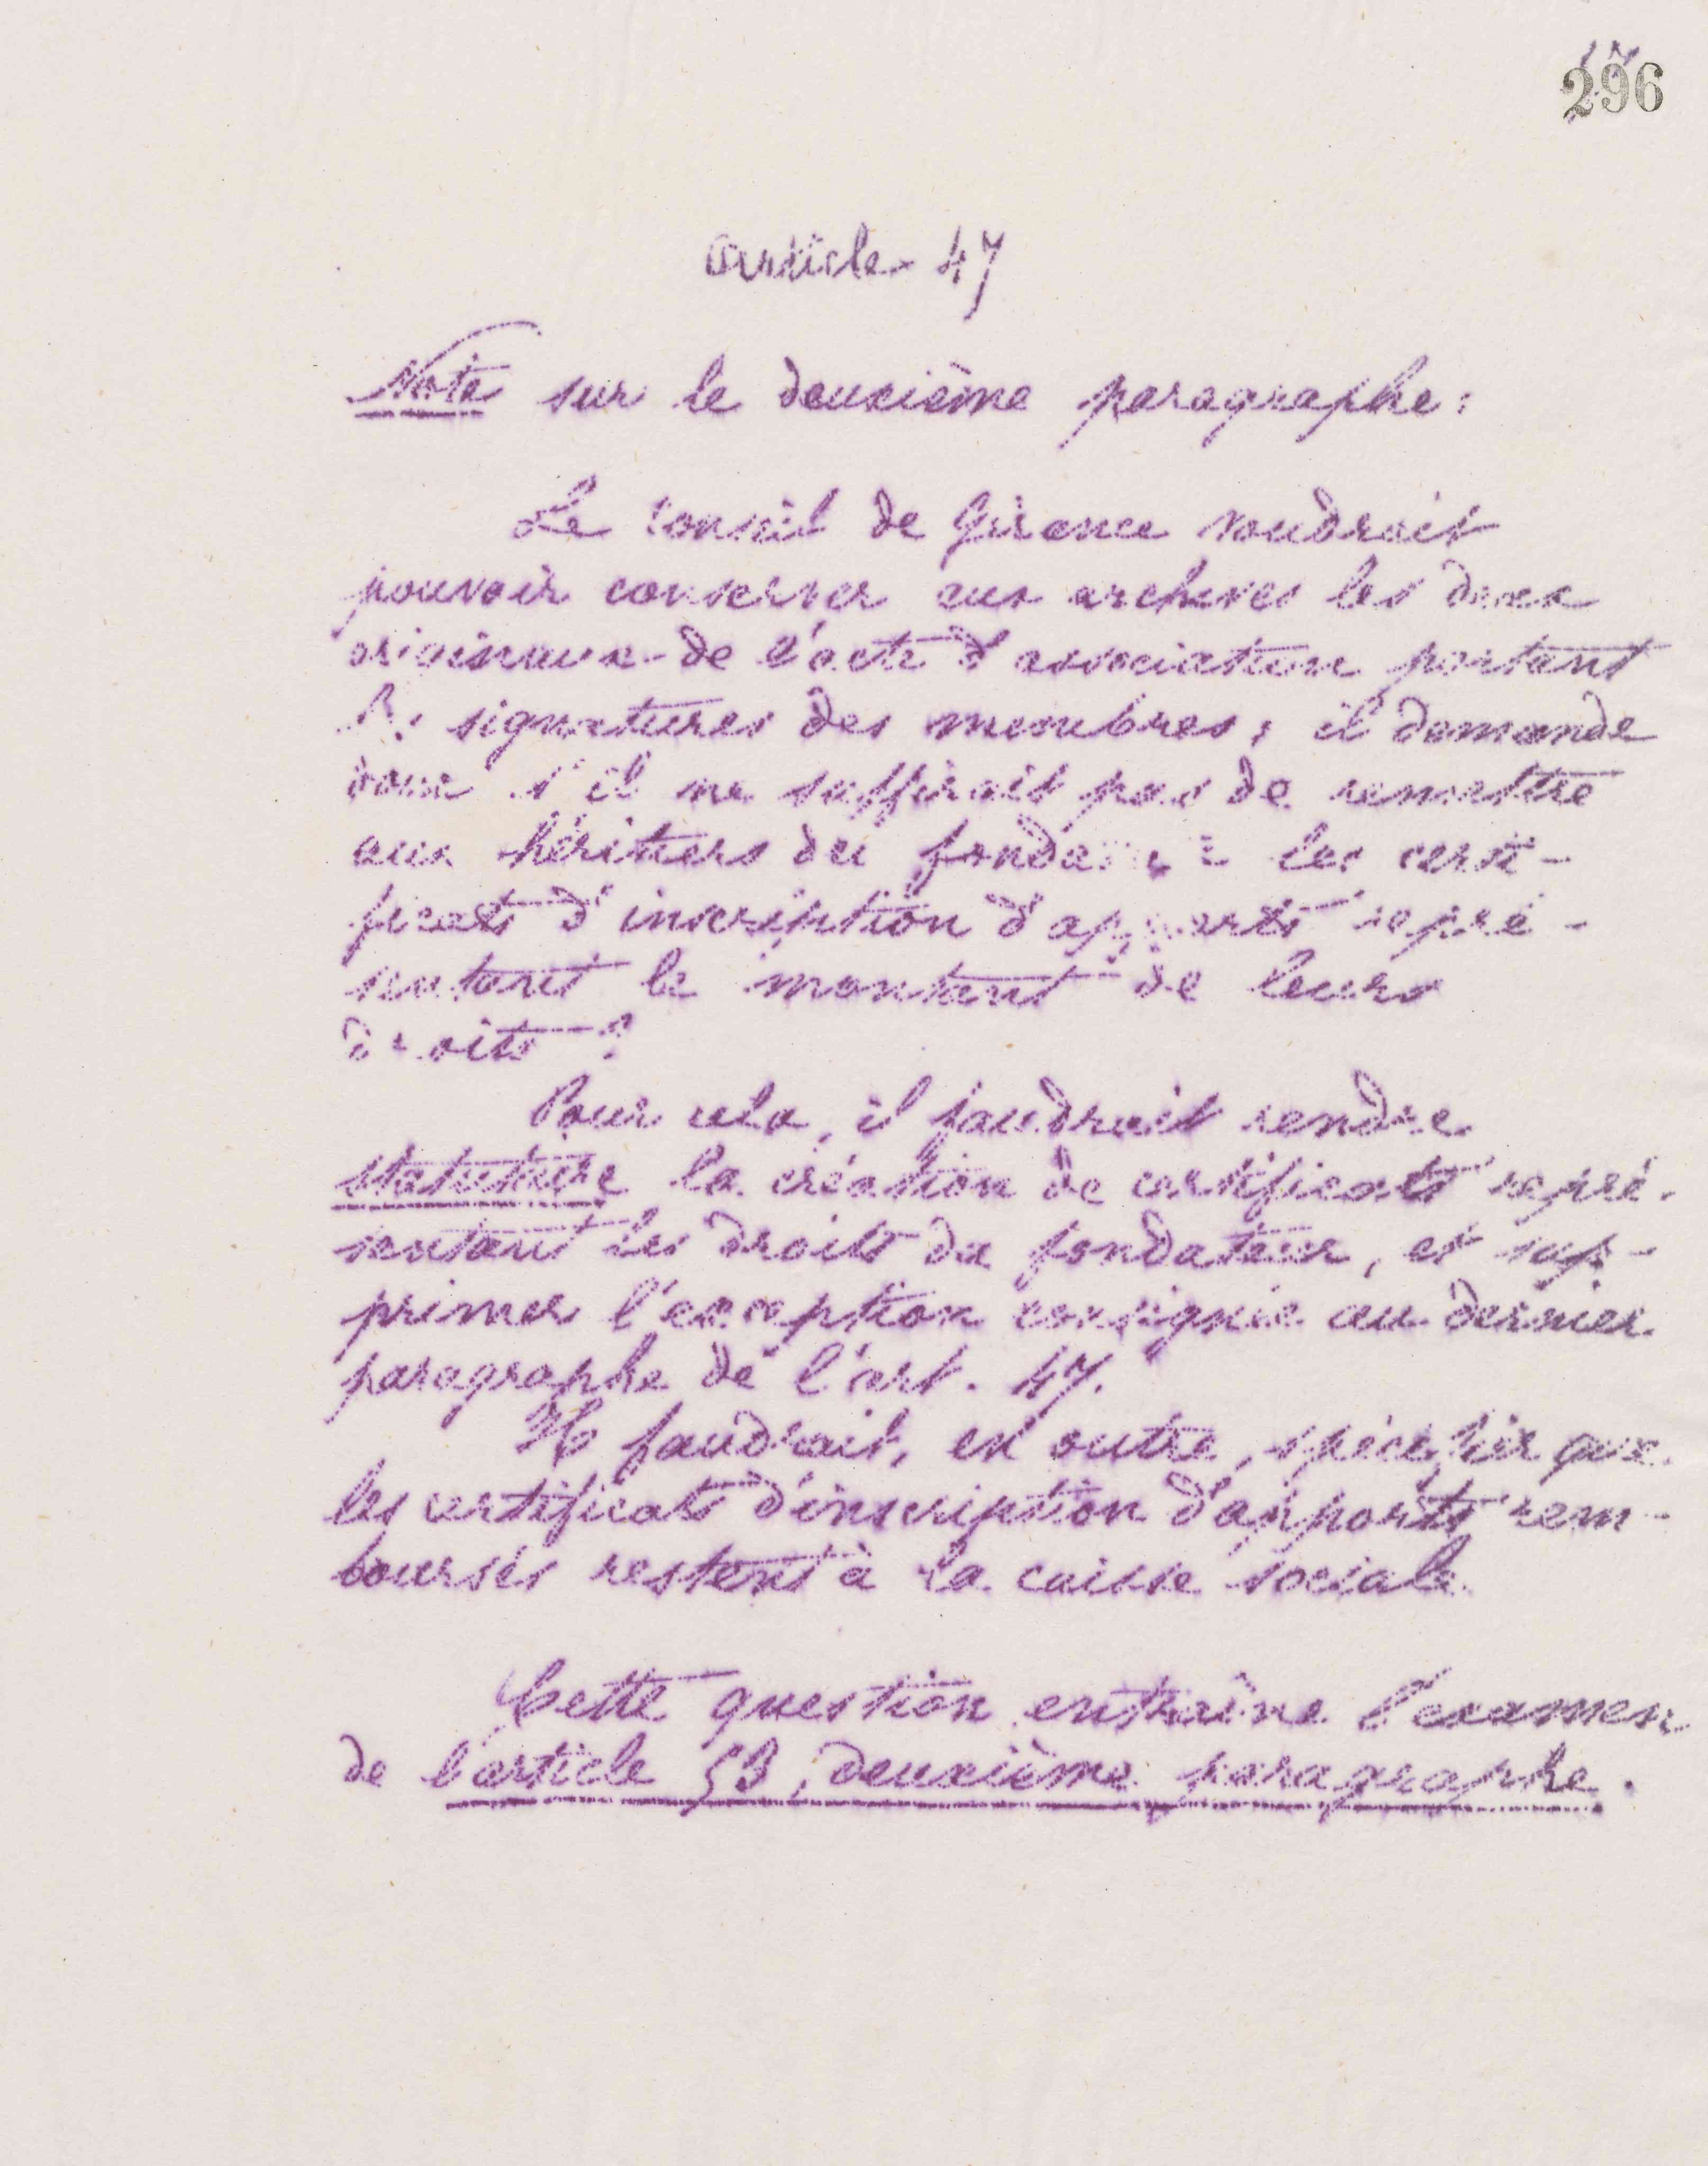 296
Article 47
Note sur le deuxième paragraphe :
Le Conseil de Gérance voudrait
pouvoir conserver aux archives les deux
originaux de l'acte d'association portant
les signatures des membres ; il demande
donc s'il ne suffirait pas de remettre
aux héritiers du fondateur les certi-
ficats d'inscription d'apports repré-
sentant le montant de leurs
droits ?
Pour cela, il faudrait rendre
statutaire la création de certificats repré-
sentant les droits du fondateur, et sup-
primer l'exception consignée au dernier
paragraphe de l'art. 47.
Il faudrait, en outre, spécifier que
les certificats d'inscription d'apports rem-
boursés restent à la caisse sociale
Cette question entraîne l'examen
de l'article 53, deuxième paragraphe.